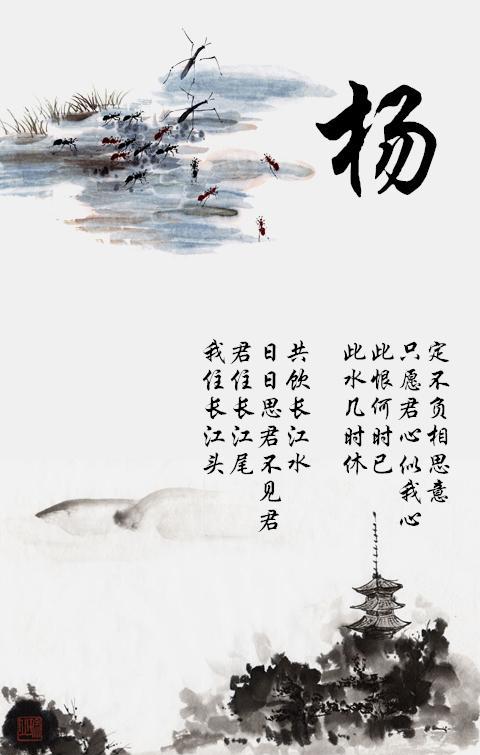 杨
我住长江头
君住长江尾
日日思君不见君
共饮长江水
此水几时休
此恨何时已
只愿君心似我心
定不负相思意